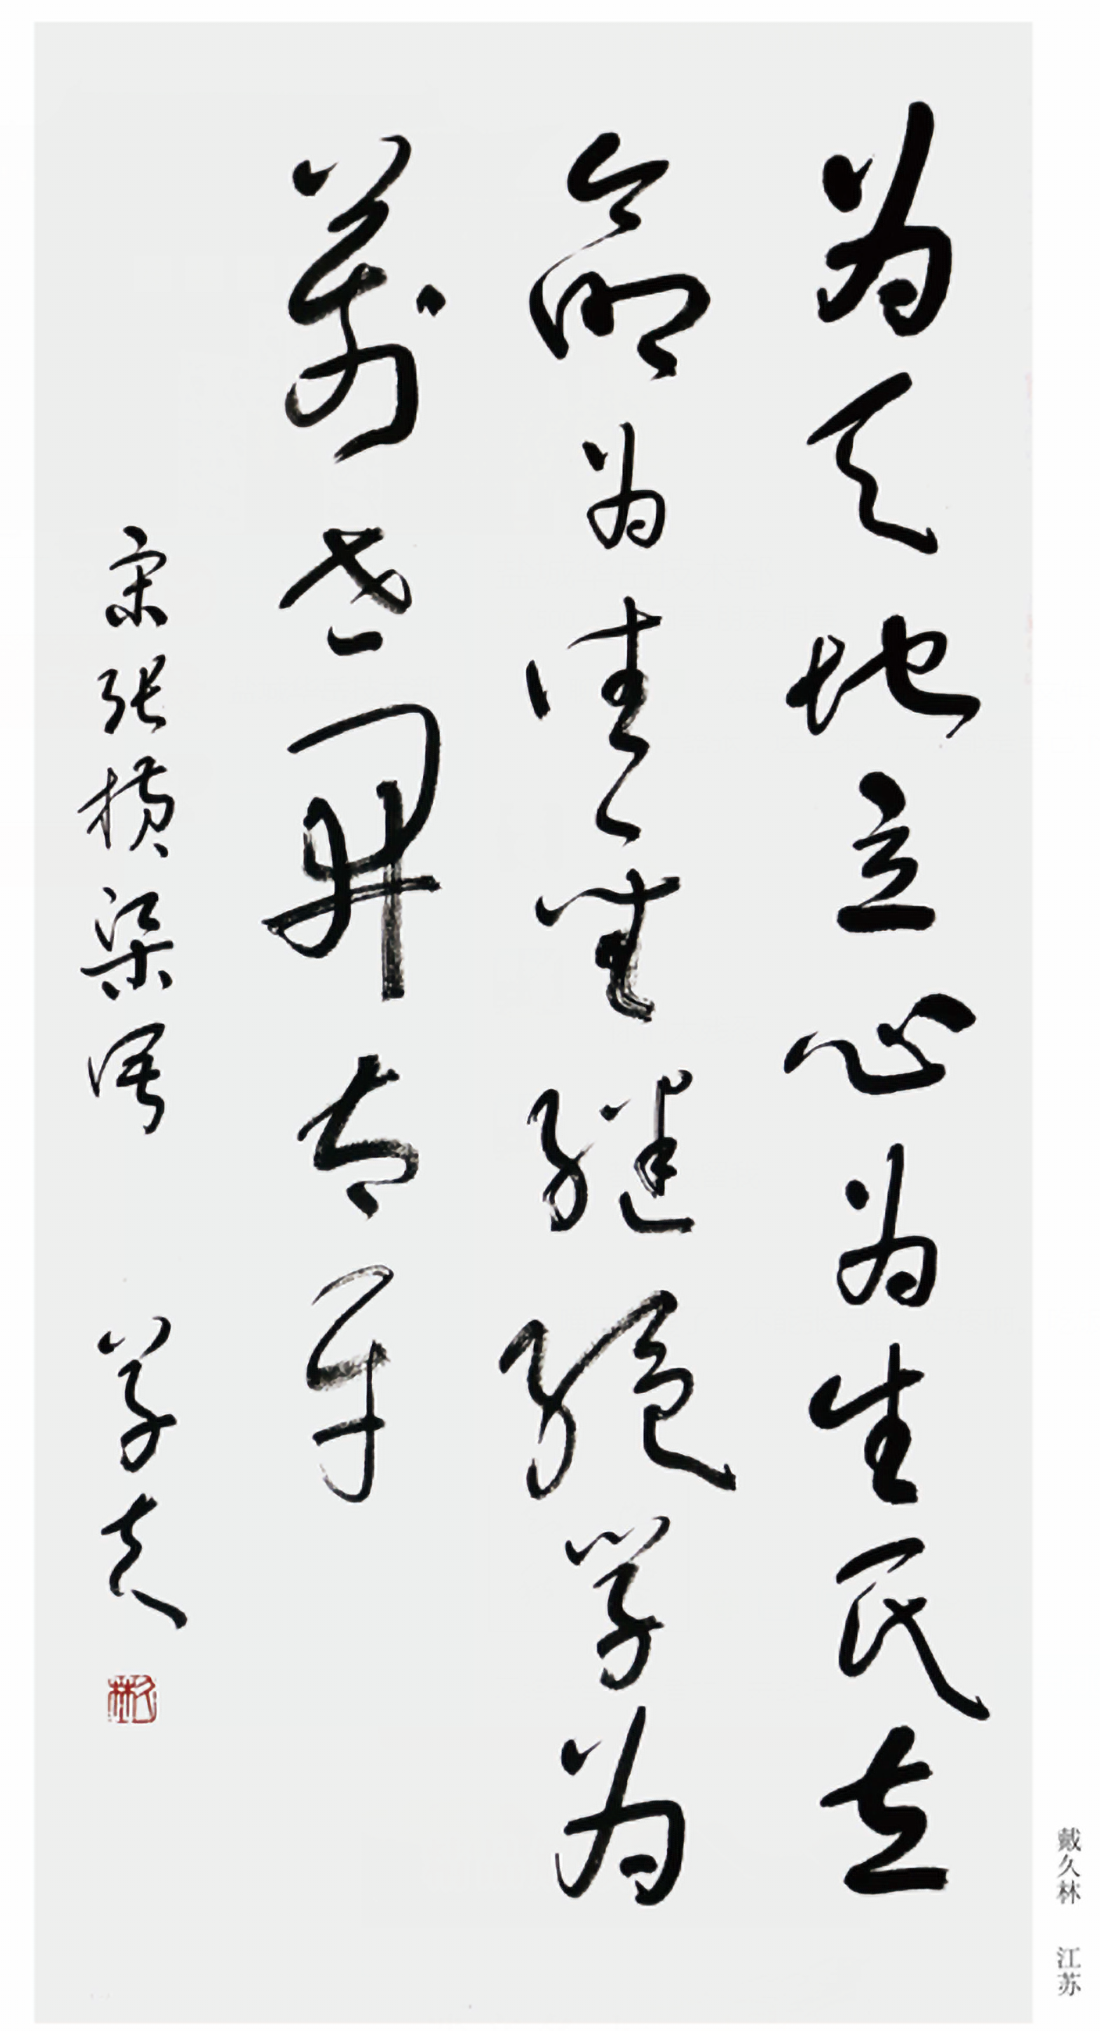 为天地立心为生民立
命为往聖继绝学为
萬世開太平
宋张横渠语
久林
戴久林 江苏